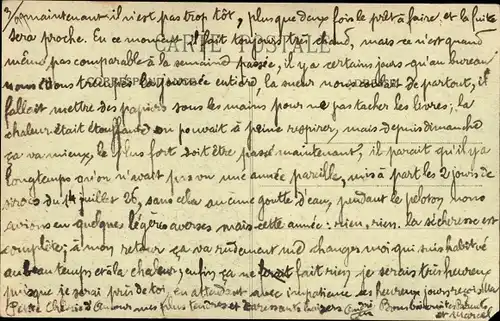 3/ maintenant il n'est pas trop tôt, plus que deux fois le prêt à faire, et la fuite
sera proche. En ce moment il fait toujours très chaud, mais ce n'est quand
CARTE POSTALE
même pas comparable à la semaine passée, il y a certains jours qu'au bureau
CORRESPONDANCE
nous étions trempés la journée entière, la sueur nous coulait de partout, il
fallait mettre des papiers sous les mains pour ne pas tacher les livres; la
chaleur était étouffante on pouvait à peine respirer, mais depuis dimanche
ça va mieux, le plus fort doit être passé maintenant, il paraît qu'il y a
longtemps qu'on n'avait pas vu une année pareille, mis à part les 2 jours de
siroco du 14 juillet 26, sans cela aucune goutte d'eau, pendant le peloton nous
avions eu quelques légères averses mais cette année: rien, rien. la sécheresse est
complète; à mon retour ça va rudement me changer moi qui suis habitué
au beau temps et à la chaleur, enfin ça ne fait rien, je serais très heureux
puisque je serai près de toi, en attendant avec impatience ces heureux jours reçois Ma
Petite Chérie d'Amour mes plus tendres et caressants baisers
et Marcel